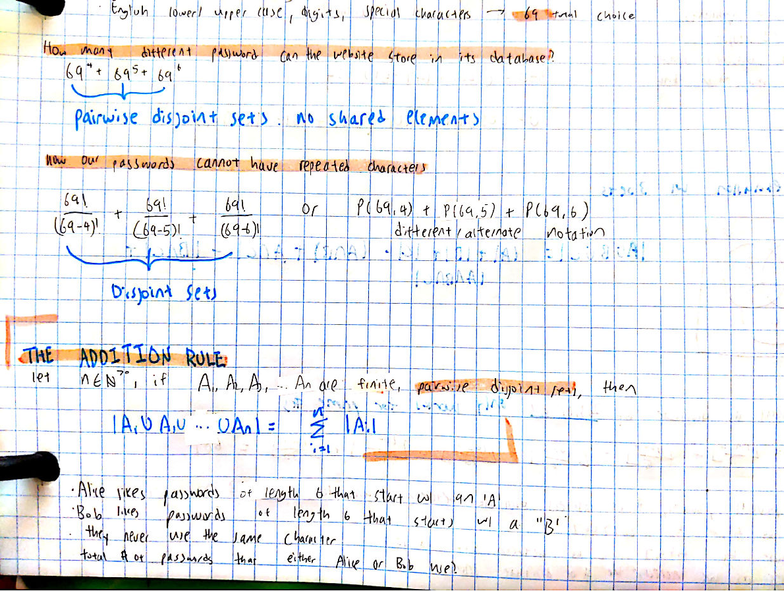 English lower/ upper case, digits, special characters → 69 total choice
How many different password can the website store in its database?
69⁴ + 69⁵ + 69⁶
pairwise disjoint sets. no shared elements
Now our passwords cannot have repeated characters
69!/(69-4)! + 69!/(69-5)! + 69!/(69-6)! or P(69,4) + P(69,5) + P(69,6)
different/alternate notation
Disjoint sets
THE ADDITION RULE
let n∈ℕ^>0, if A₁, A₂, A₃, ... An are finite, pairwise disjoint sets, then
|A₁ ∪ A₂ ∪ ... ∪ An| = Σ_{i=1}^{n} |Ai|
· Alice likes passwords of length 6 that start w/ an 'A'
· Bob likes passwords of length 6 that starts w/ a "B"
· they never use the same character
total # of passwords that either Alice or Bob use?